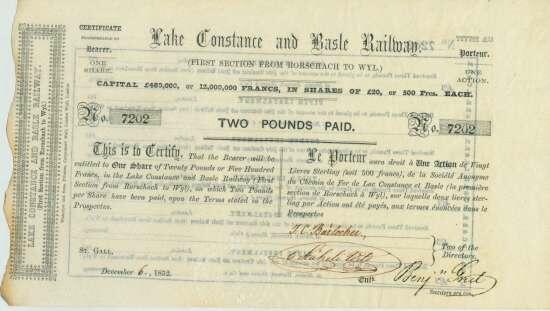 CERTIFICATE
Bearer.
Lake Constance and Basle Railway.
Porteur.
ONE SHARE.
(FIRST SECTION FROM RORSCHACH TO WYL.)
ONE ACTION.
CAPITAL £485,000, or 12,000,000 FRANCS, IN SHARES OF £20, or 500 Fres. EACH.
No. 7202
TWO POUNDS PAID.
No. 7202
This is to Certify, That the Bearer will be
entitled to One Share of Twenty Pounds or Five Hundred
Francs, in the Lake Constance and Basle Railway (First
Section from Rorschach to Wyl), on which Two Pounds
per Share have been paid, upon the Terms stated in the
Prospectus.
Le Porteur aura droit à Une Action de Vingt
Livres Sterling (soit 500 francs), de la Société Anonyme
du Chemin de Fer de Lac Constance et Basle (la première
section de Rorschach à Wyl), sur laquelle deux livres ster-
ling par Action ont été payés, aux termes énoncées dans le
Prospectus
ST. GALL,
December 6, 1852.
Two of the
Directors.
Entd.
LAKE CONSTANCE AND BASLE RAILWAY.
First Section from Rorschach to Wyl.